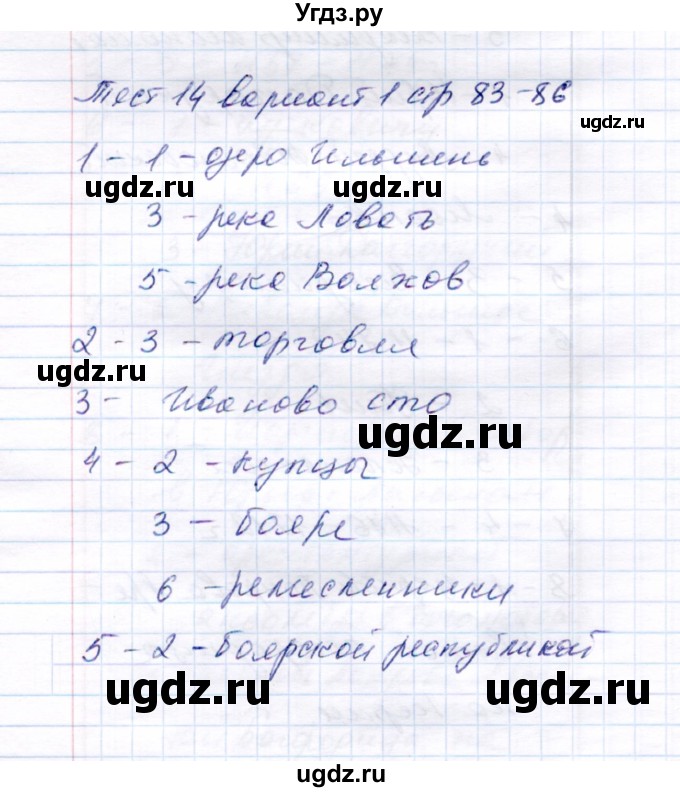 Угдз.ру
Тест 14 вариант 1 стр 83-86
ugdz.ru
1 - 1 - озеро Ильмень
ugdz.ru ugdz.ru
3 - река Ловать
5 - река Волхов
2 - 3 - торговля
ugdz.ru
3 - Иваново сто
ugdz.ru
4 - 2 - купцы
3 - бояре
6 - ремесленники
5 - 2 - боярской республикой
ugdz.ru ugdz.ru
ugdz.ru